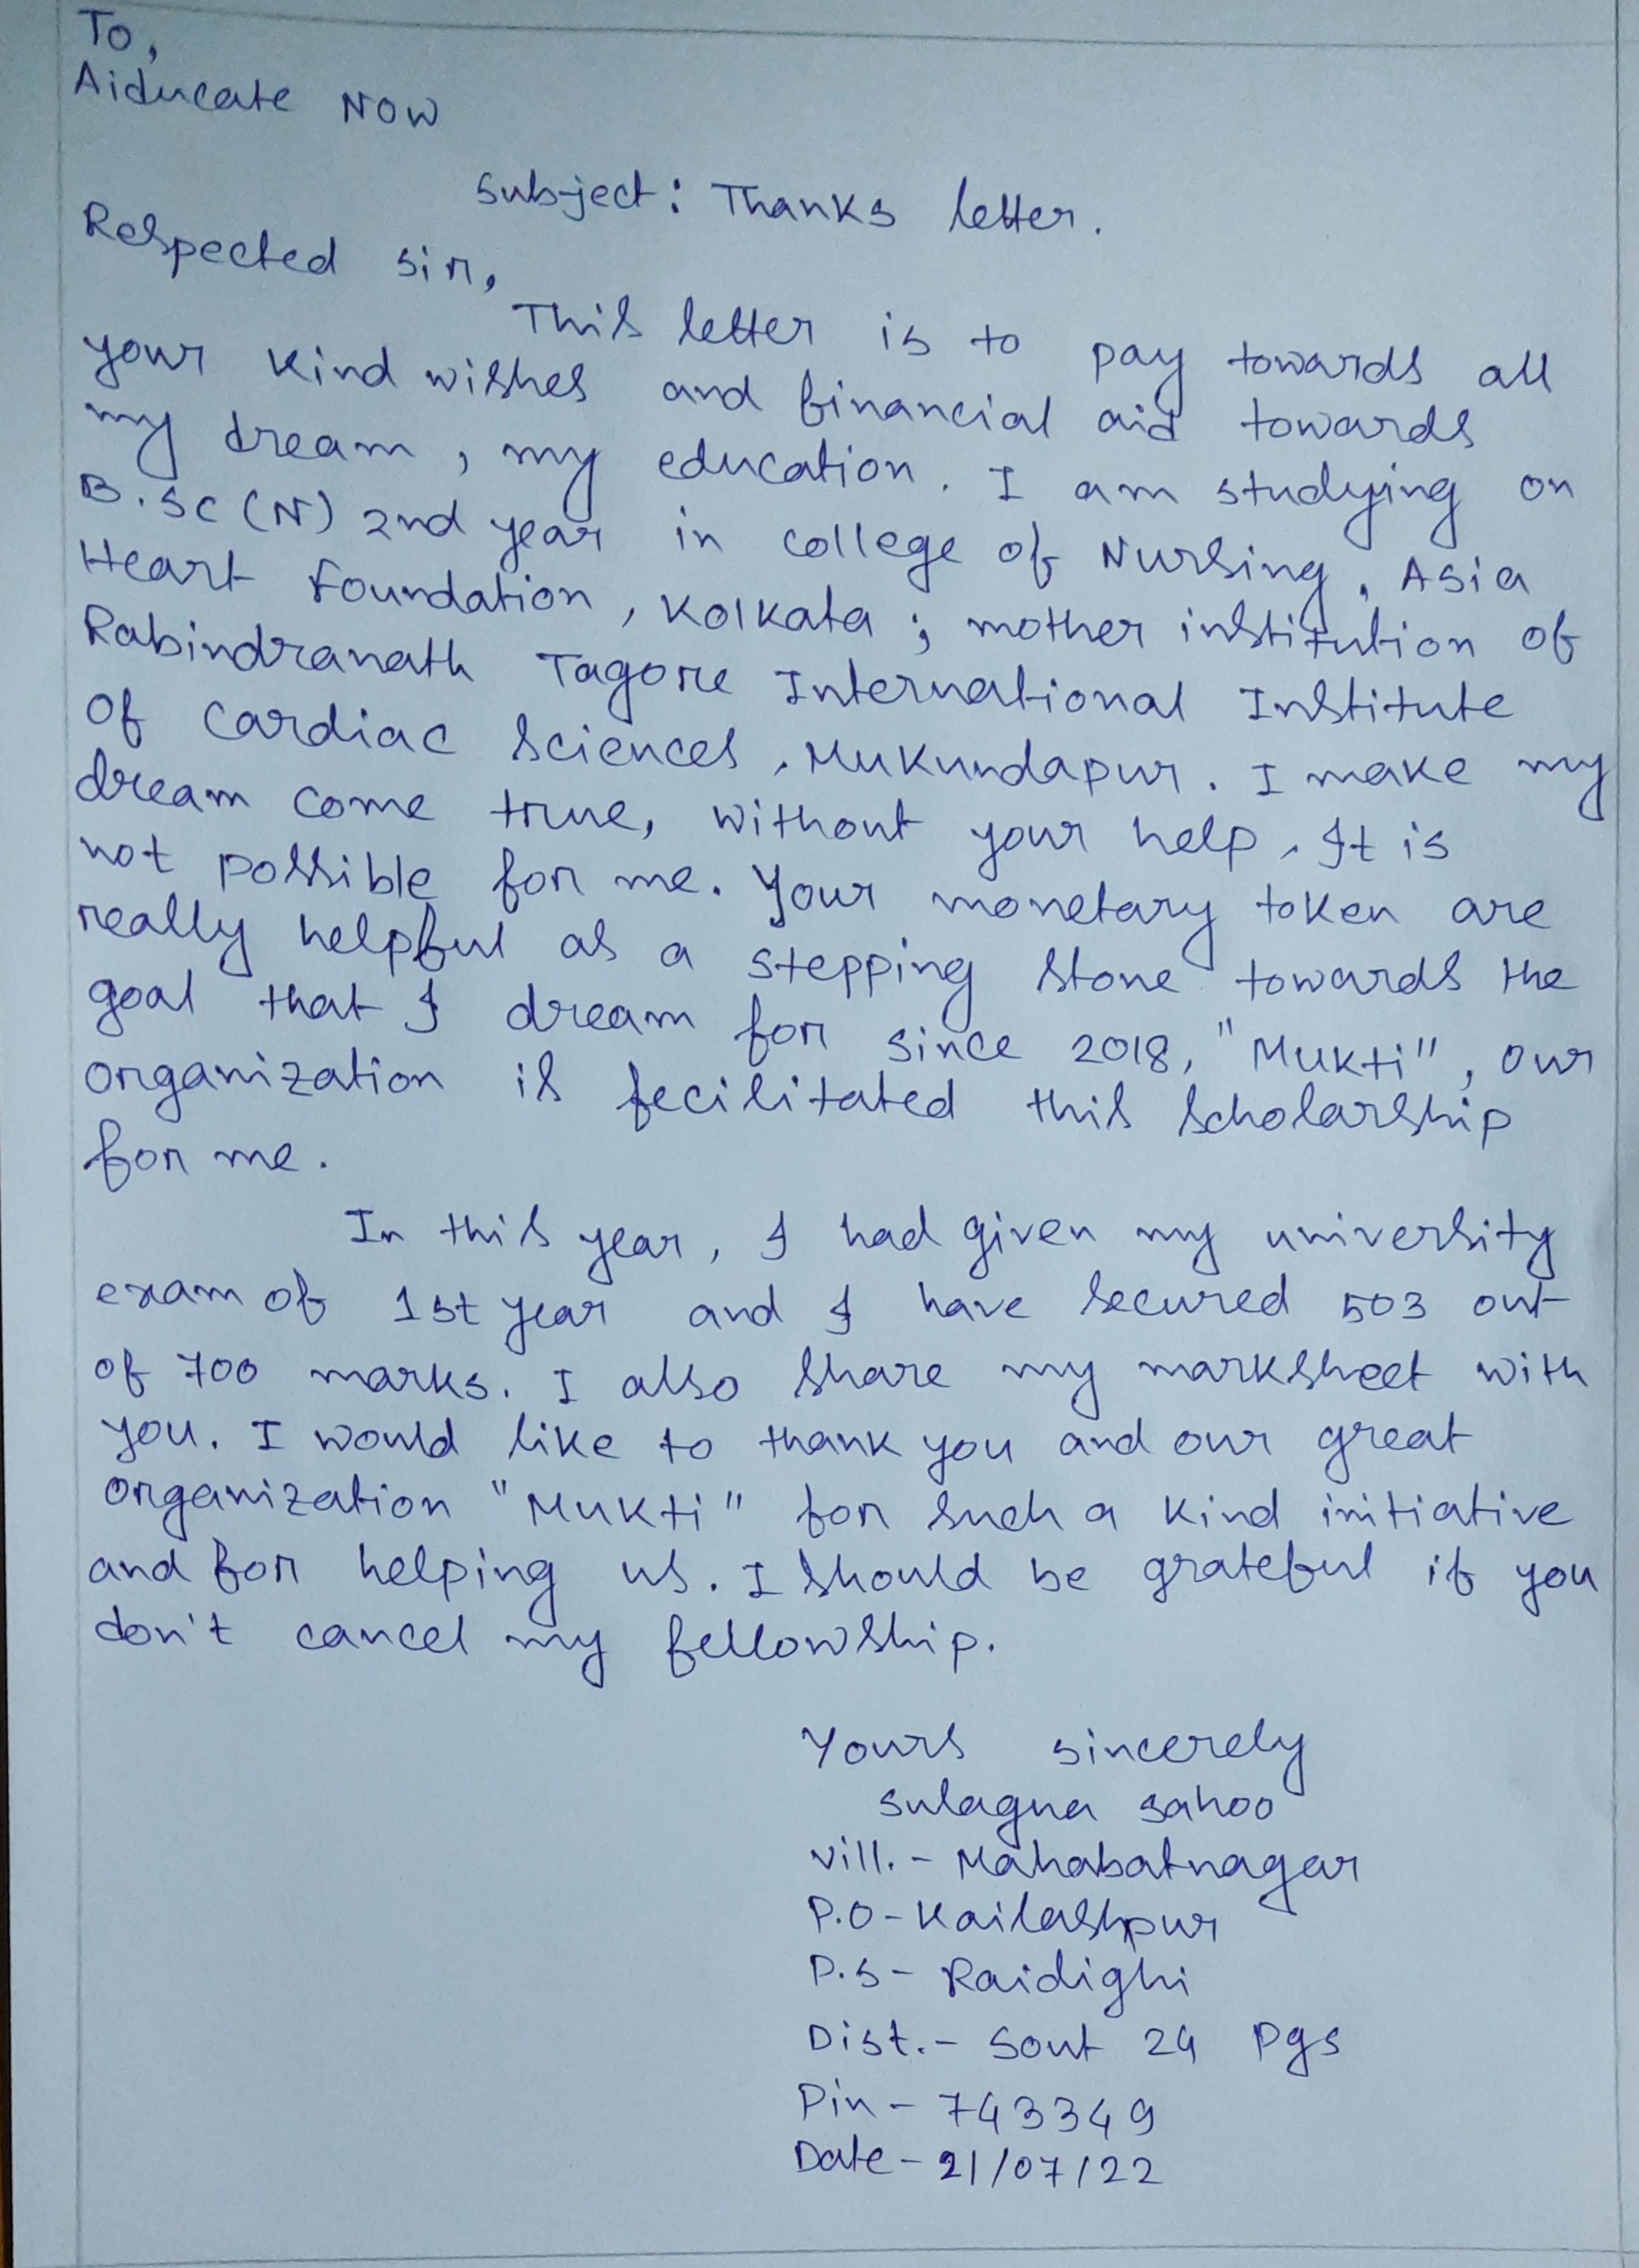 To,
Aiducate Now
Subject: Thanks letter.
Respected sir,
This letter is to pay towards all
your kind wishes and financial aid towards
my dream, my education. I am studying on
B.Sc (N) 2nd year in college of Nursing, Asia
Heart Foundation, Kolkata; mother institution of
Rabindranath Tagore International Institute
Of Cardiac Sciences, Mukundapur. I make my
dream come true, without your help, It is
not possible for me. Your monetary token are
really helpful as a stepping stone towards the
goal that I dream for since 2018, "Mukti", our
organization is fecilitated this scholarship
for me.
In this year, I had given my university
exam of 1st year and I have secured 503 out
of 700 marks. I also share my marksheet with
you. I would like to thank you and our great
organization "Mukti" for such a kind initiative
and for helping us. I should be grateful if you
don't cancel my fellowship.
Yours sincerely
Sulagna Sahoo
Vill. - Mahabatnagar
P.O - Kailashpur
P.S - Raidighi
Dist. - Sout 24 Pgs
Pin - 743349
Date - 21/07/22